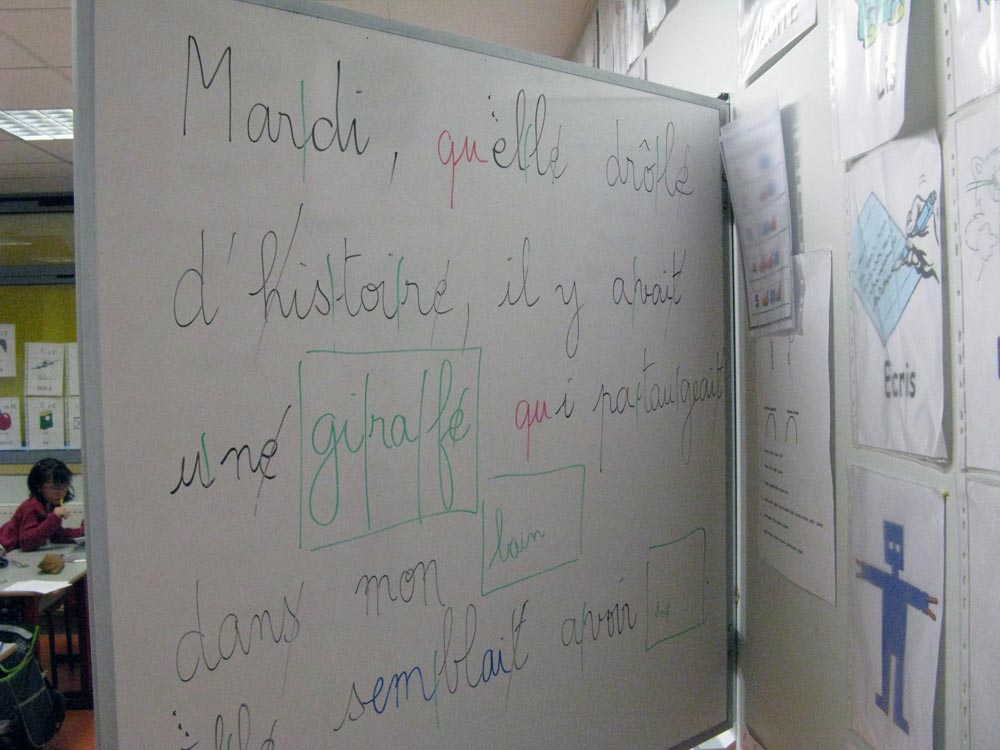 Mardi, quelle drôle
d'histoire, il y avait
une girafe qui pataugeait
dans mon bain
elle semblait avoir
Lis
Écris
5